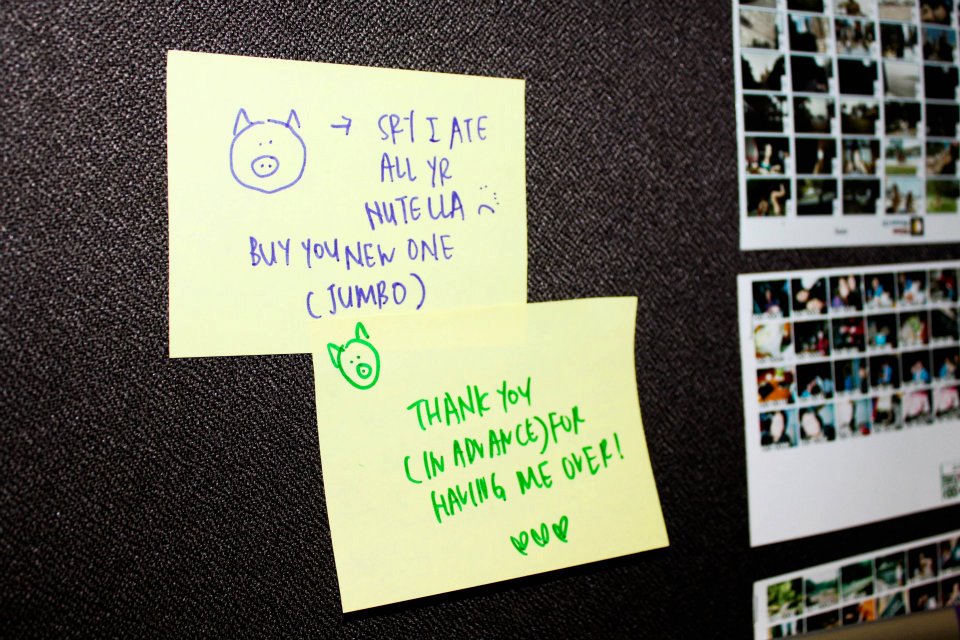 → SRY I ATE
ALL YR
NUTELLA
BUY YOU NEW ONE
(JUMBO)
THANK YOU
(IN ADVANCE) FOR
HAVING ME OVER!